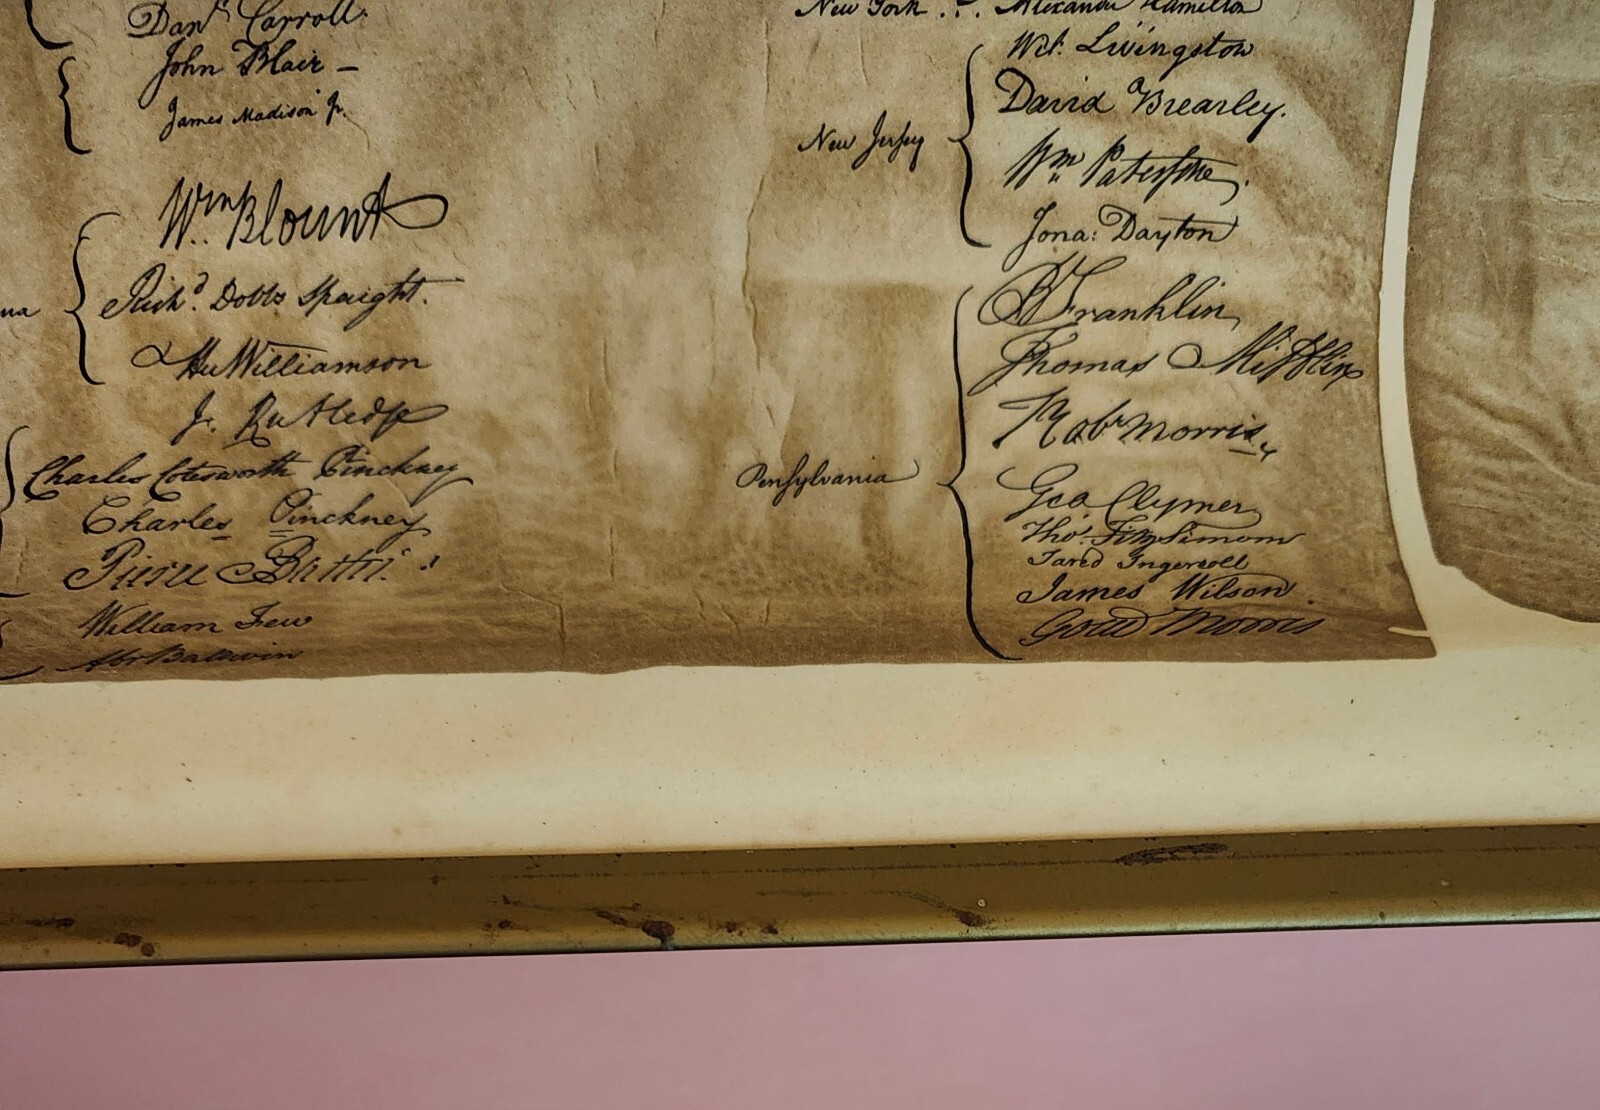 Danl Carroll.
John Blair –
James Madison Jr.
Wm Blount
Richd. Dobbs Spaight.
Hu Williamson
J. Rutledge
Charles Cotesworth Pinckney
Charles Pinckney
Pierce Butler.
William Few
Abr Baldwin
New York . . . Alexander Hamilton
New Jersey
Wil: Livingston
David Brearley.
Wm Paterson.
Jona: Dayton
Pensylvania
B Franklin
Thomas Mifflin
Robt Morris
Geo. Clymer
Thos. FitzSimons
Jared Ingersoll
James Wilson.
Gouv Morris